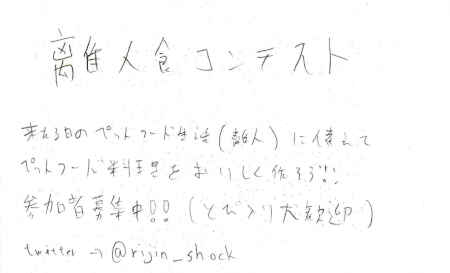 離人食コンテスト
来たる日のペットフード生活(離人)に備えて
ペットフード料理をおいしく作ろう!!
参加者募集中!!(とびいり大歓迎)
twitter → @rijin_shock